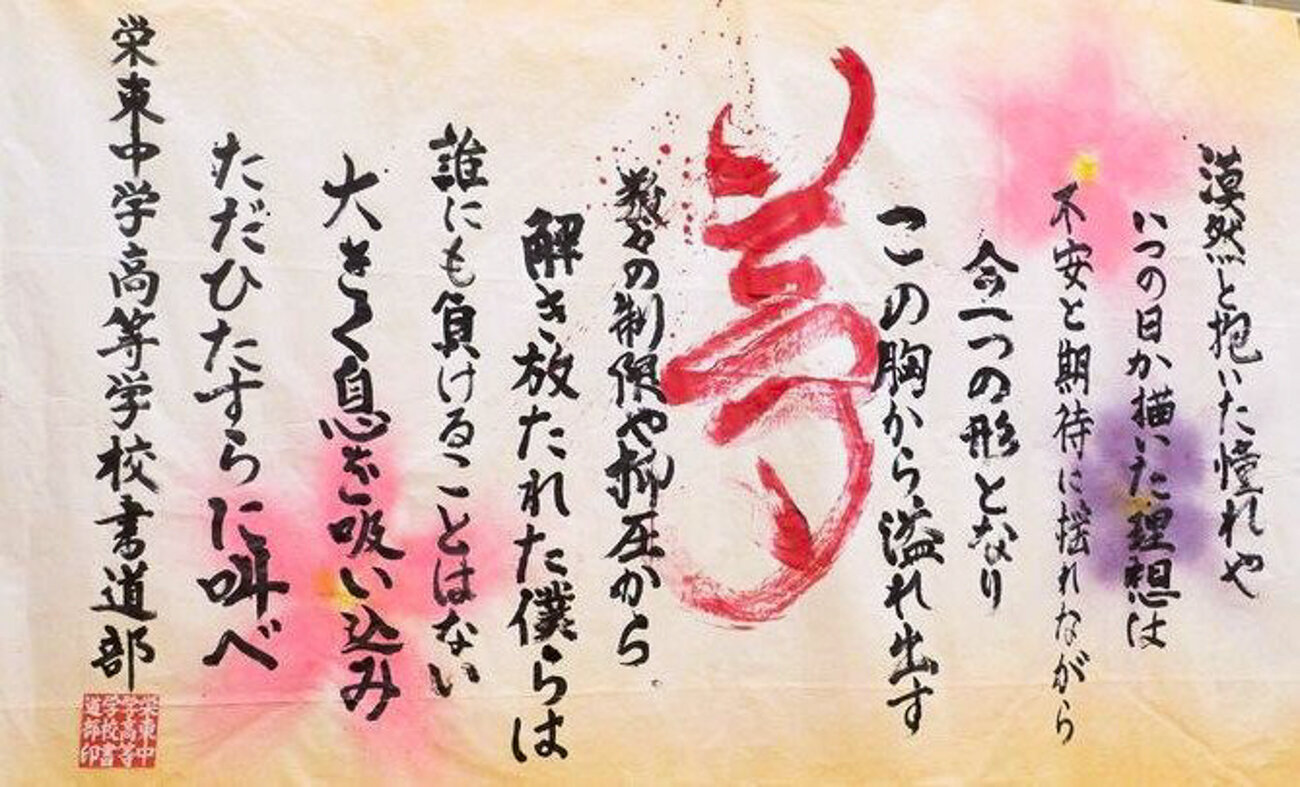 漠然と抱いた憧れや
いつの日か描いた理想は
不安と期待に揺れながら
今一つの形となり
この胸から溢れ出す
数々の制限や抑圧から
解き放たれた僕らは
誰にも負けることはない
大きく息を吸い込み
ただひたすらに叫べ
栄東中学高等学校書道部
栄東中
学高等
学校書
道部印